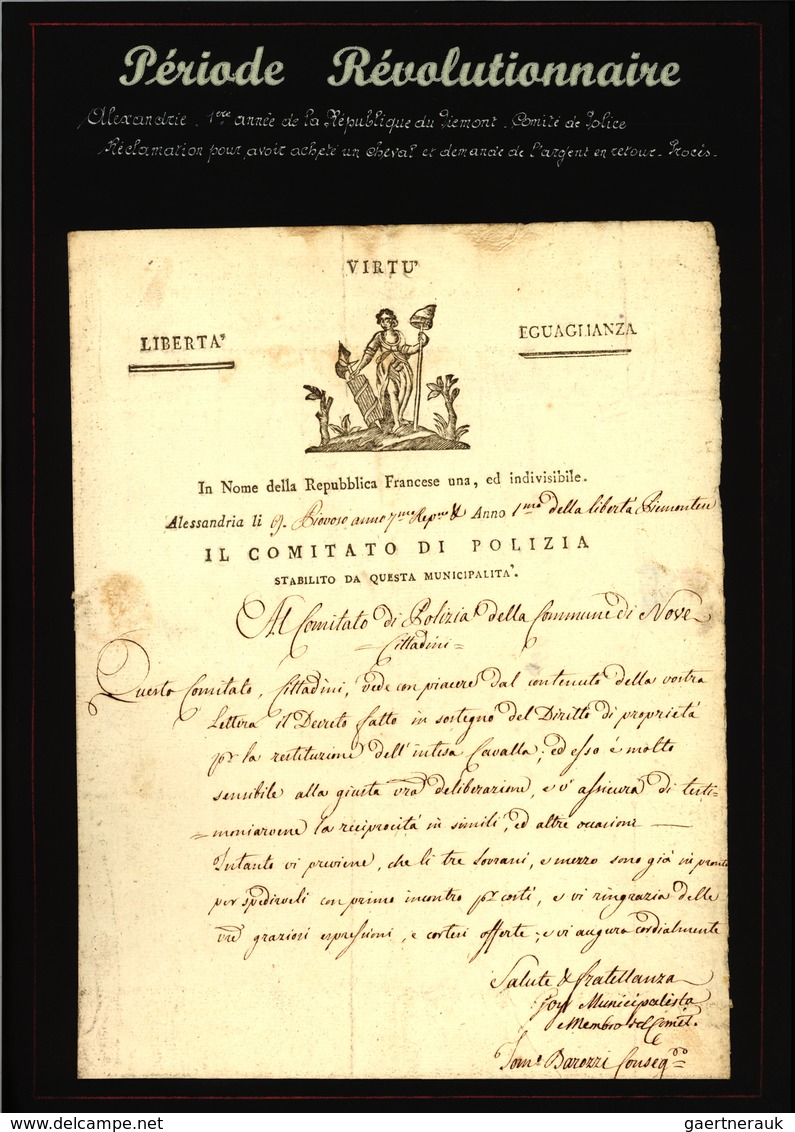 Période Révolutionnaire
Alexandrie. 1ère année de la République du Piémont. Comité de Police
Réclamation pour avoir acheté un cheval et demande de l'argent en retour. Procès.
VIRTU'
LIBERTA'
EGUAGLIANZA
In Nome della Repubblica Francese una, ed indivisibile.
Alessandria li 9. Piovoso anno 7.mo Rep.no & Anno 1.mo della libertà Piemontese
IL COMITATO DI POLIZIA
STABILITO DA QUESTA MUNICIPALITA'.
Al Comitato di Polizia della Commune di Nove
= Cittadini =
Questo Comitato, Cittadini, vede con piacere dal contenuto della vostra
Lettera il Decreto fatto in sostegno del Diritto di proprietà
pr la restituzione dell'intesa Cavalla; ed esso é molto
sensibile alla giusta vra deliberazione, e v'assicura di testi=
=moniarvene la reciprocità in simili, ed altre occasioni
Intanto vi previene, che li tre sovrani, e mezzo sono già in pronto
per spedirveli con primo incontro pr costì, e vi ringrazia delle
vre graziosi espressioni, e cortesi offerte; e vi augura cordialmente
Salute & fratellanza
Municipalista
e Membro del Comit.
Barozzi Conseg.
gaertnerauk